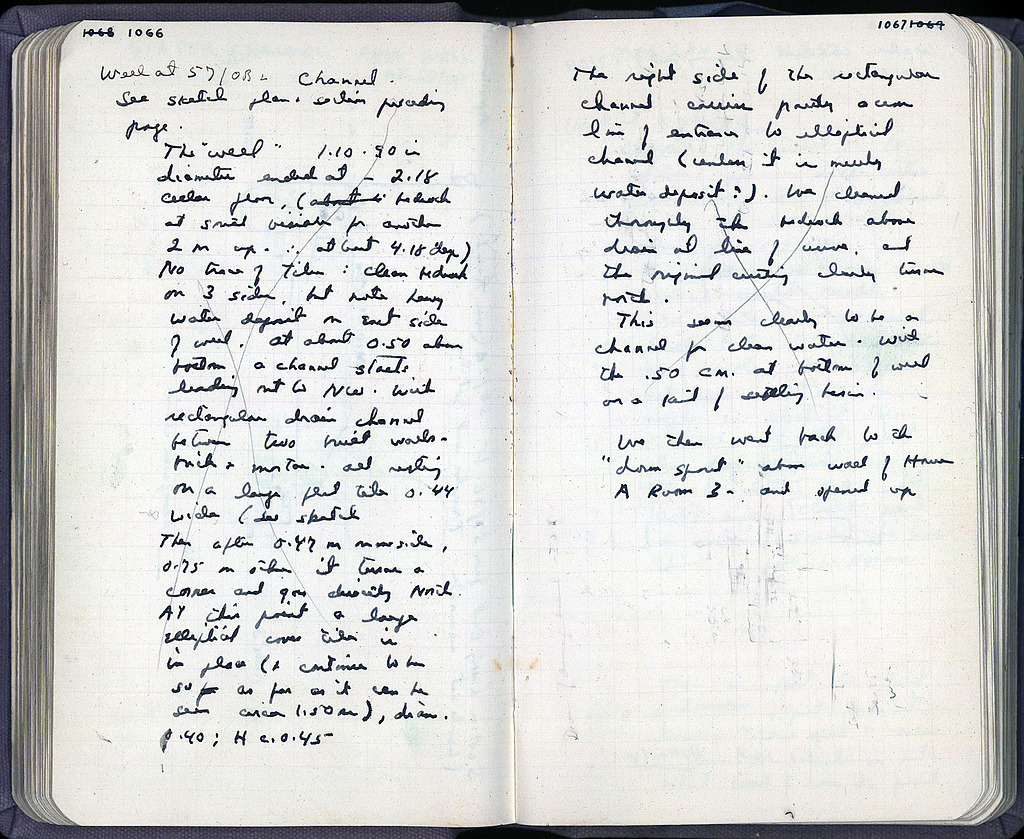 1068 1066
Well at 57/OB Channel.
See sketch plan + section preceding
page.
The "well" 1.10 - .90 in
diameter ended at - 2.18
cellar floor, (about is bedrock
at small
2 m up. ∴ at least 4.18 deep)
No trace of tiles : clean bedrock
on 3 sides, but note heavy
water deposit on East side
of well. At about 0.50 above
bottom, a channel starts
leading out to NW. With
rectangular drain channel
between two built walls -
brick + mortar. All resting
on a large flat tile 0.44
wide (see sketch
Then after 0.47 m on one side,
0.75 on other it turns a
corner and goes directly North.
At this point a large
elliptical cover tile is
in place (+ continues to be
so as far as it can be
seen circa 1.50 m), diam.
0.40; H c. 0.45
1067 1069
The right side of the rectangular
channel carries partly across
line of entrance to elliptical
channel (unless it is merely
water deposit?). We cleaned
thoroughly the bedrock above
drain at line of curve, and
the original cutting clearly turns
north.
This seems clearly to be a
channel for clean water. With
the .50 cm. at bottom of well
as a kind of settling basin.
We then went back to the
"down spout" above wall of House
A Room 3 - and opened up